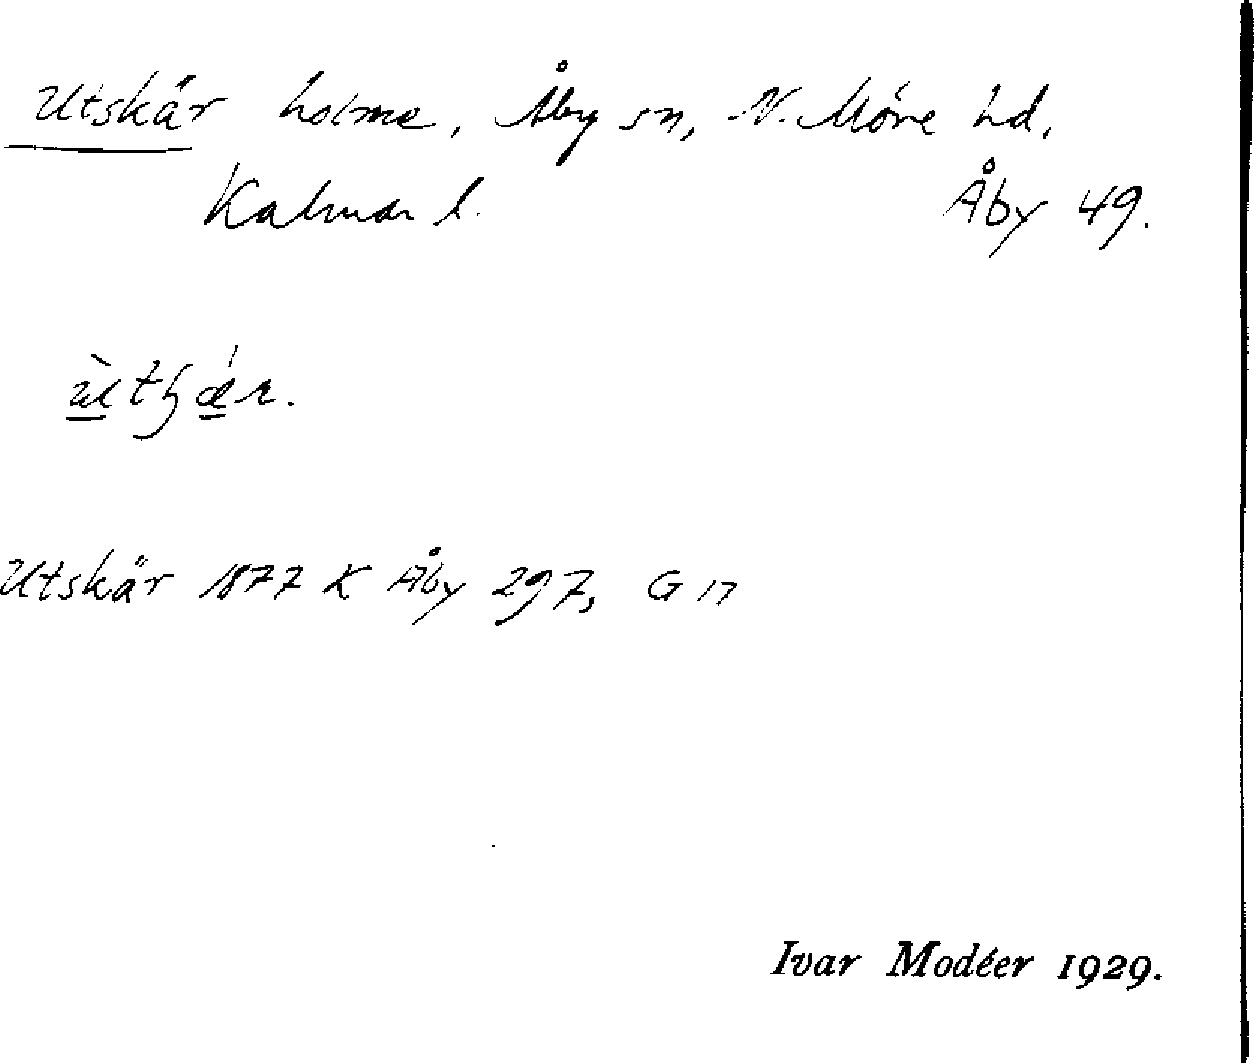 Utskär holme, Åby sn, N. Möre hd,
Kalmar l. Åby 49.
Utskär 1877 K Åby 297, G 17
Ivar Modéer 1929.